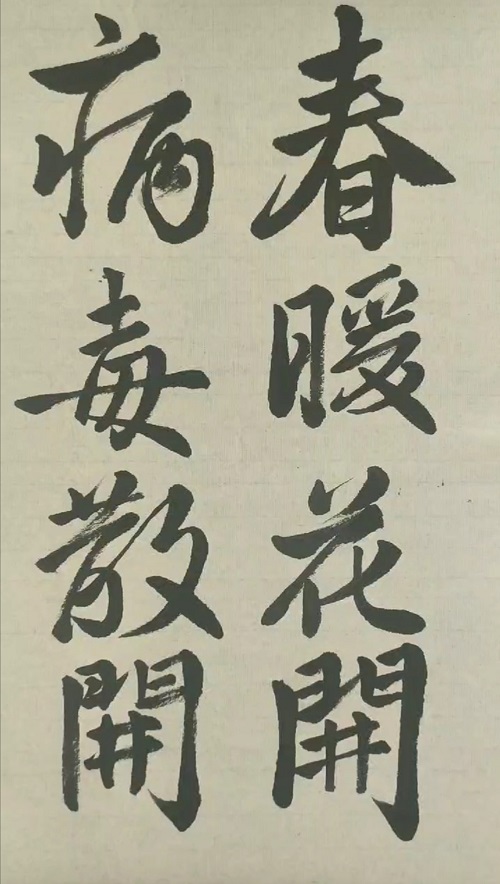 春暖花開
病毒散開